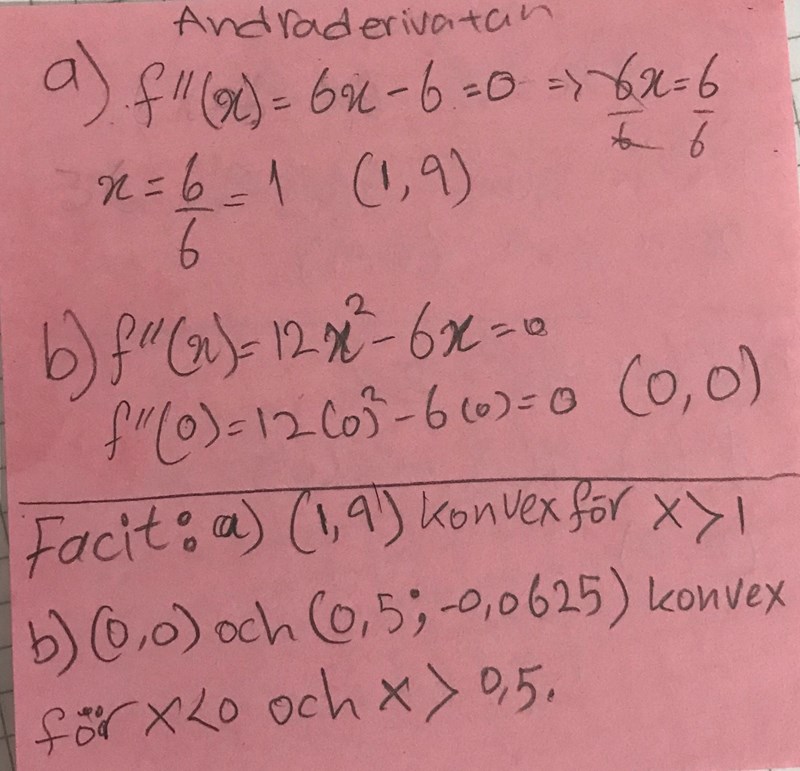 Andraderivatan
a) f''(x) = 6x - 6 = 0 => 6x/6 = 6/6
x = 6/6 = 1 (1,9)
b) f''(x) = 12x² - 6x = 0
f''(0) = 12(0)² - 6(0) = 0 (0,0)
Facit: a) (1,9) konvex för x > 1
b) (0,0) och (0,5; -0,0625) konvex
för x < 0 och x > 0,5.